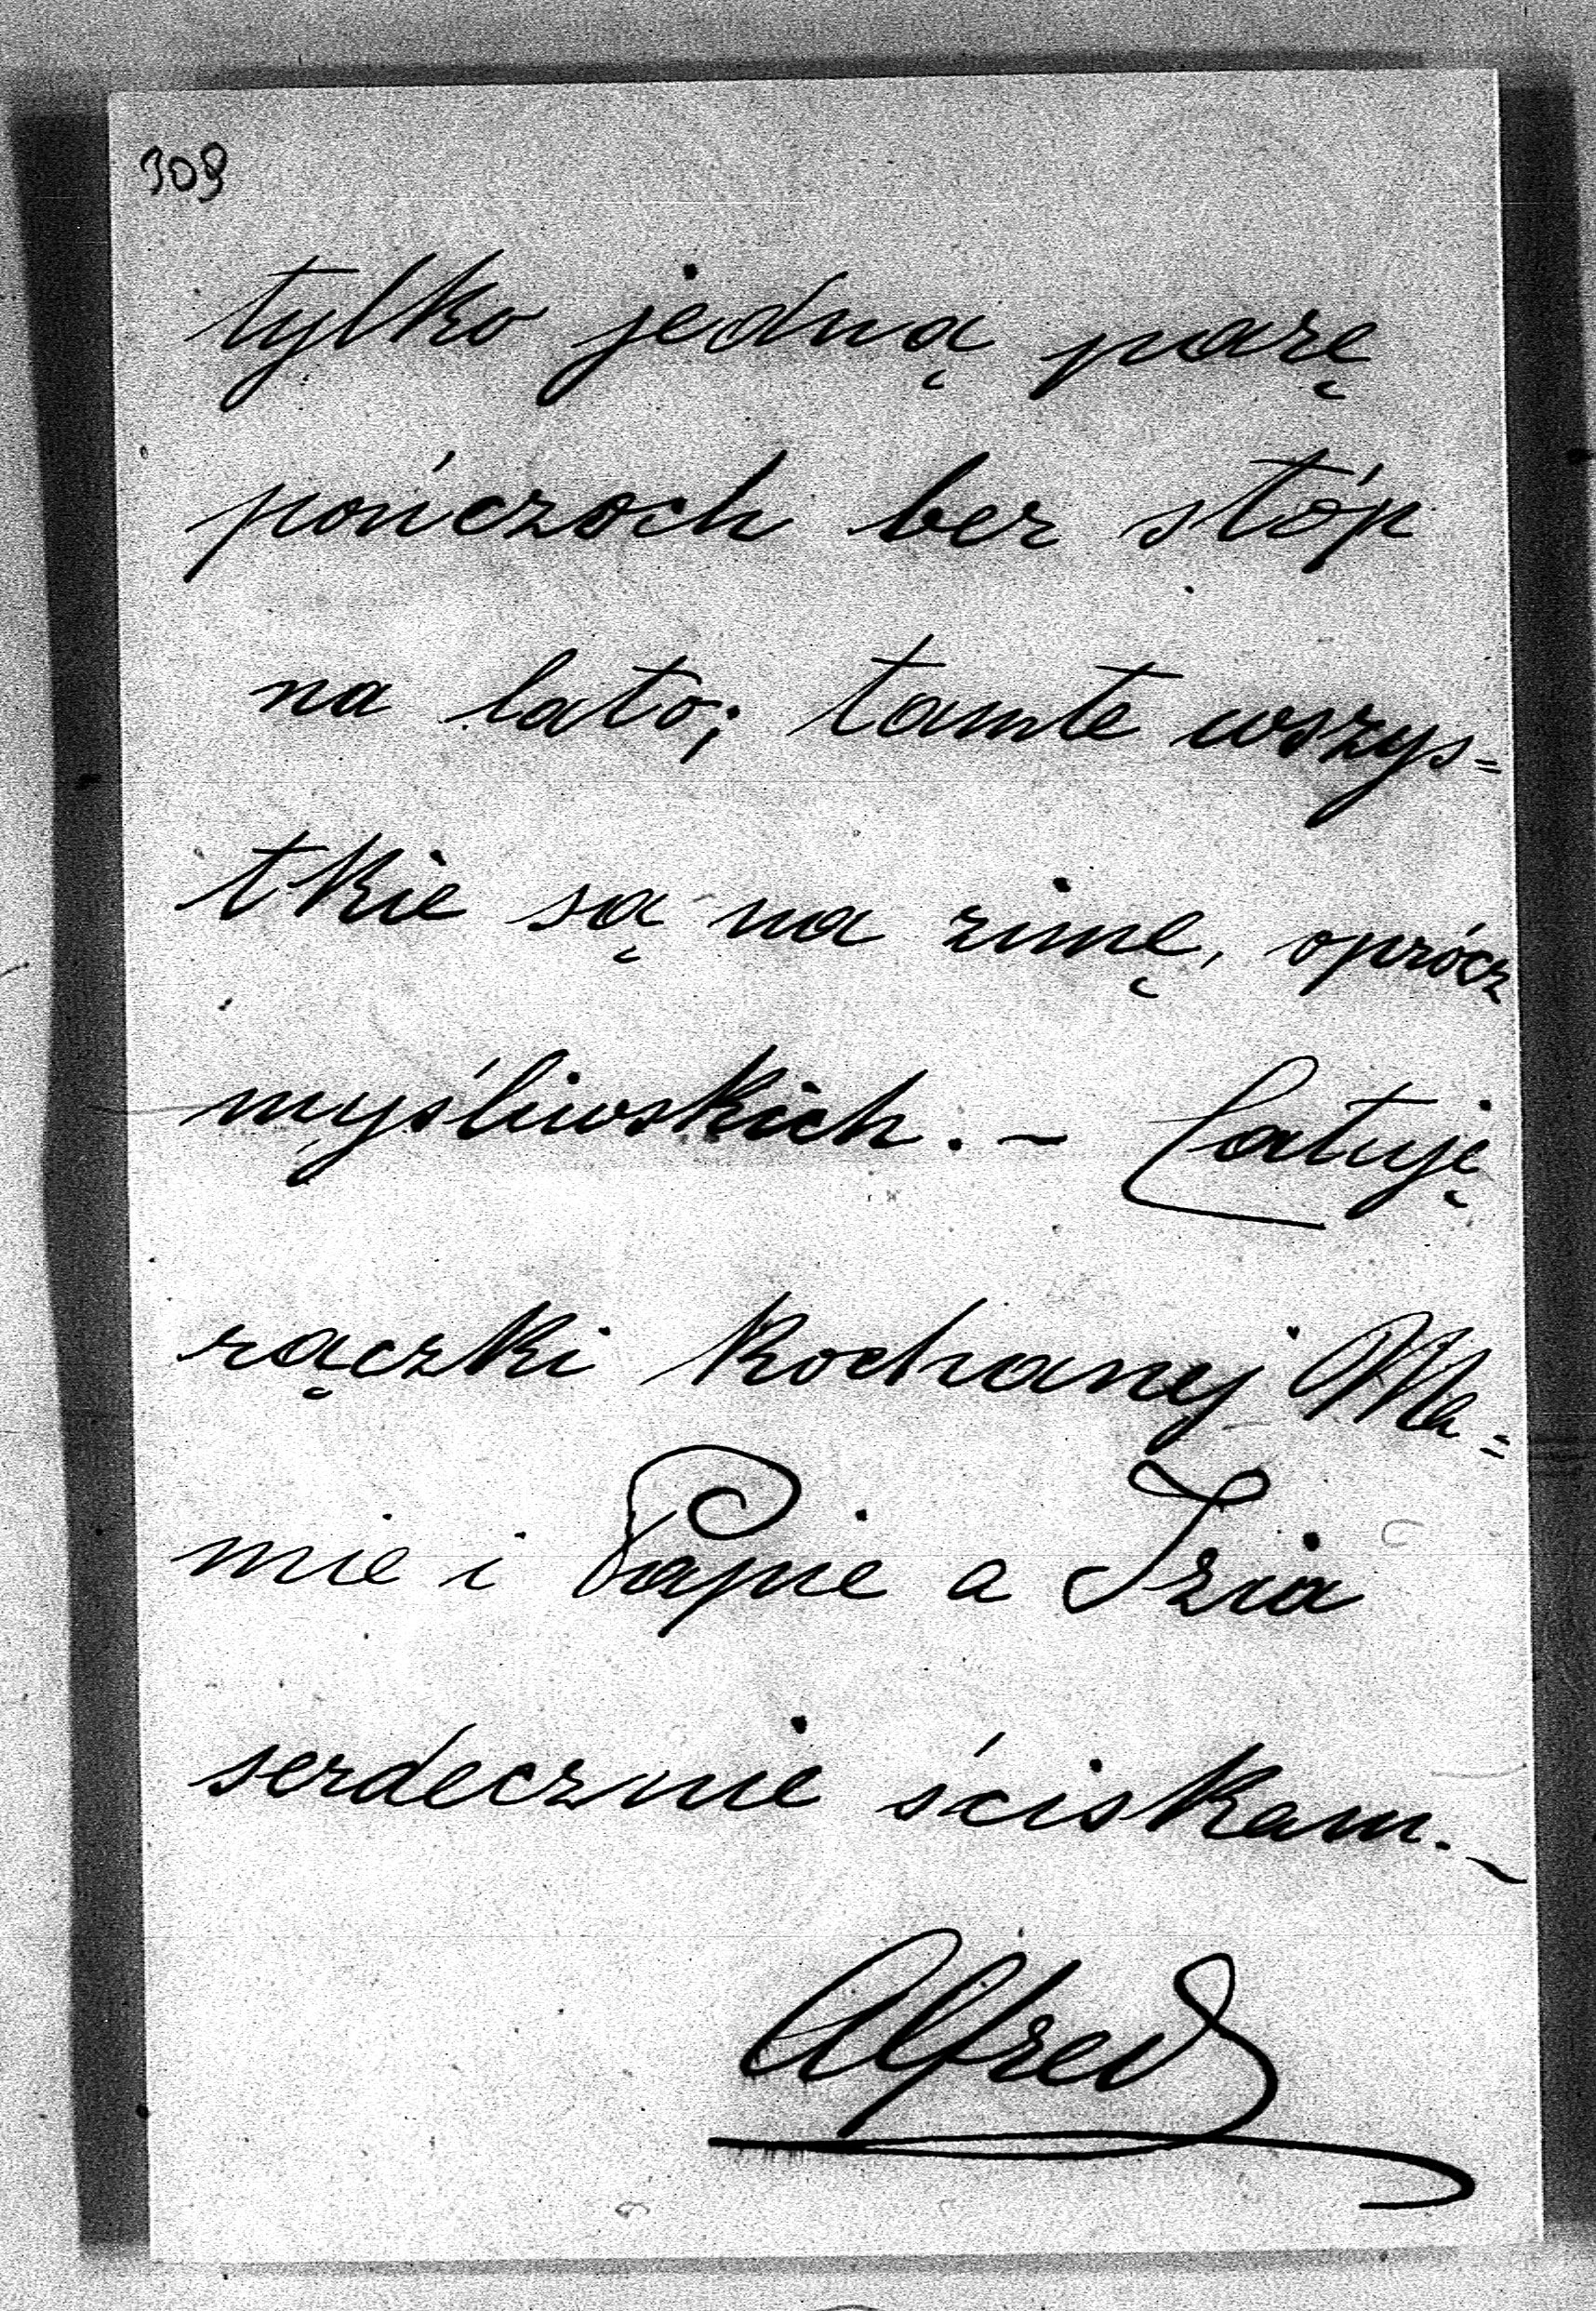 309
tylko jedną parę
pończoch bez stóp
na lato; tamte wszys=
tkie są na zimę, oprócz
myśliwskich. – Całuję
rączki kochanej Ma=
mie i Papie a Izia
serdecznie ściskam. –
Alfred